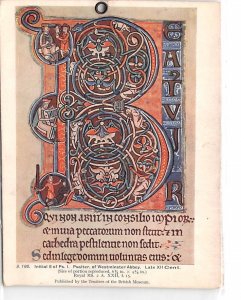 B
EATVS VIR
Qui non abiit in consilio impior
& in uia peccatorum non stetit: & in
cathedra pestilentie non sedit.
Sed in lege domini uoluntas eius: &
Initial B of Ps. I. Psalter, of Westminster Abbey. Late XII Centy.
(Size of portion reproduced, in. × in.)
Royal MS. 2 A. XXII, f. 15.
Published by the Trustees of the British Museum.